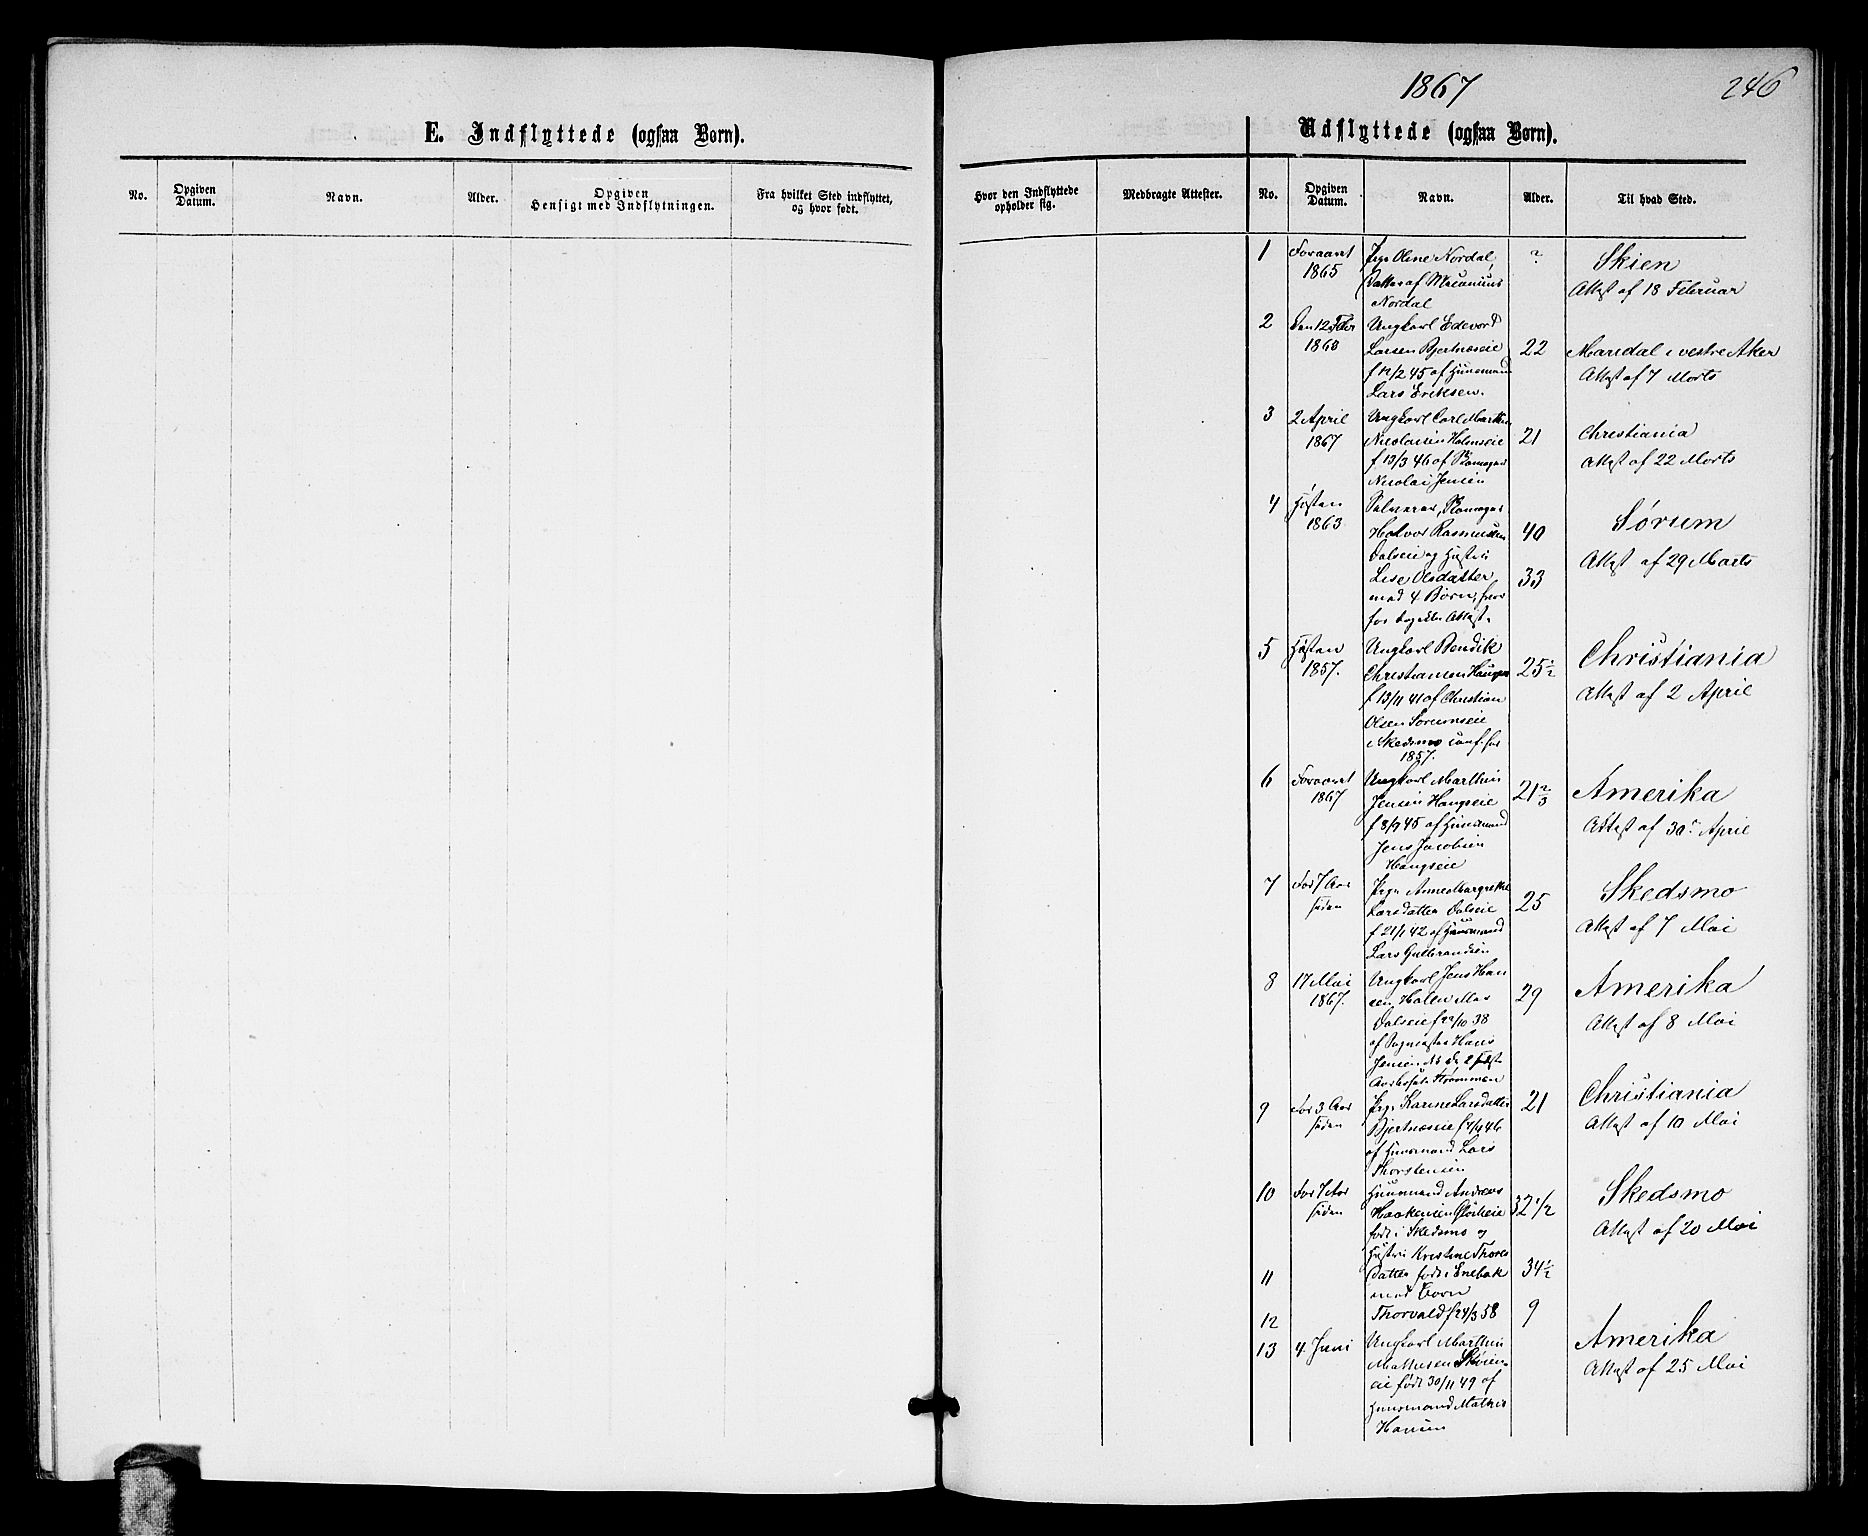 1867
246
E. Indflyttede (ogsaa Born).
Udflyttede (ogsaa Born).
No.
Opgiven Datum.
Navn.
Alder.
Opgiven Hensigt med Indflytningen.
Fra hvilket Sted indflyttet, og hvor født.
Hvor den Indflyttede opholder sig.
Medbragte Attester.
No.
Opgiven Datum.
Navn.
Alder.
Til hvad Sted.
1
Foraaret
1865
Pige Olene Nordal,
Datter af
Nordal
?
Skien
Attest af 18 Februar
2
Den 12 Febr
Ungkarl Edevard
Larsen Bjertnæseie
f 12/2 45 af Huusmand
Lars Eriksen.
22
Maredal i vestre Aker
Attest af 7 Marts
3
2 April
1867
Ungkarl Carl Marthin
Nicolaisen Holmseie
f 13/3 46 af
Nicolai Jensen
21
Christiania
Attest af 22 Marts
4
Høsten
1863
Halvor Rasmussen
Dalseie og Hustru
Lise Olsdatter
med 4 Børn, hvor
for Attest.
40
33
Sørum
Attest af 29 Marts
5
Høsten
1857.
Ungkarl Bendik
Christiansen
f 13/11 41 af Christian
Olsen Sørumseie
i Skedsmo conf. her
1857.
25 1/2
Christiania
Attest af 2 April
6
Foraaret
1867
Ungkarl Marthin
Jensen Haugseie
f 8/9 45 af Huusmand
Jens Jacobsen
Haugseie
21 2/3
Amerika
Attest af 30te April
7
For 7 Aar
siden
Pige Anne Margrethe
Larsdatter Dalseie
f 21/1 42 af Huusmand
Lars Gulbrandsen
25
Skedsmo
Attest af 7 Mai
8
17 Mai
1867.
Ungkarl Jens Han
sen Holen
Dalseie f 22/10 38
af Hans
Jensen
Strømmen
29
Amerika
Attest af 8 Mai
9
For 3 Aar
siden
Pige Karine Larsdatter
Bjertnæseie f 7/4 46
af Huusmand Lars
Thorstensen
21
Christiania
Attest af 10 Mai
10
For 7 Aar
siden
Huusmand Andreas
Haakensen
født i Skedsmo og
32 1/2
Skedsmo
Attest af 20 Mai
11
Hustru Kristine Thores
datter født i Enebak
med Barn
34 1/2
12
Thorvald f 24/3 58
9
13
4 Juni
Ungkarl Marthin
Mathisen Skøien-
eie født 30/11 49 af
Huusmand Mathis
Hansen
Amerika
Attest af 25 Mai